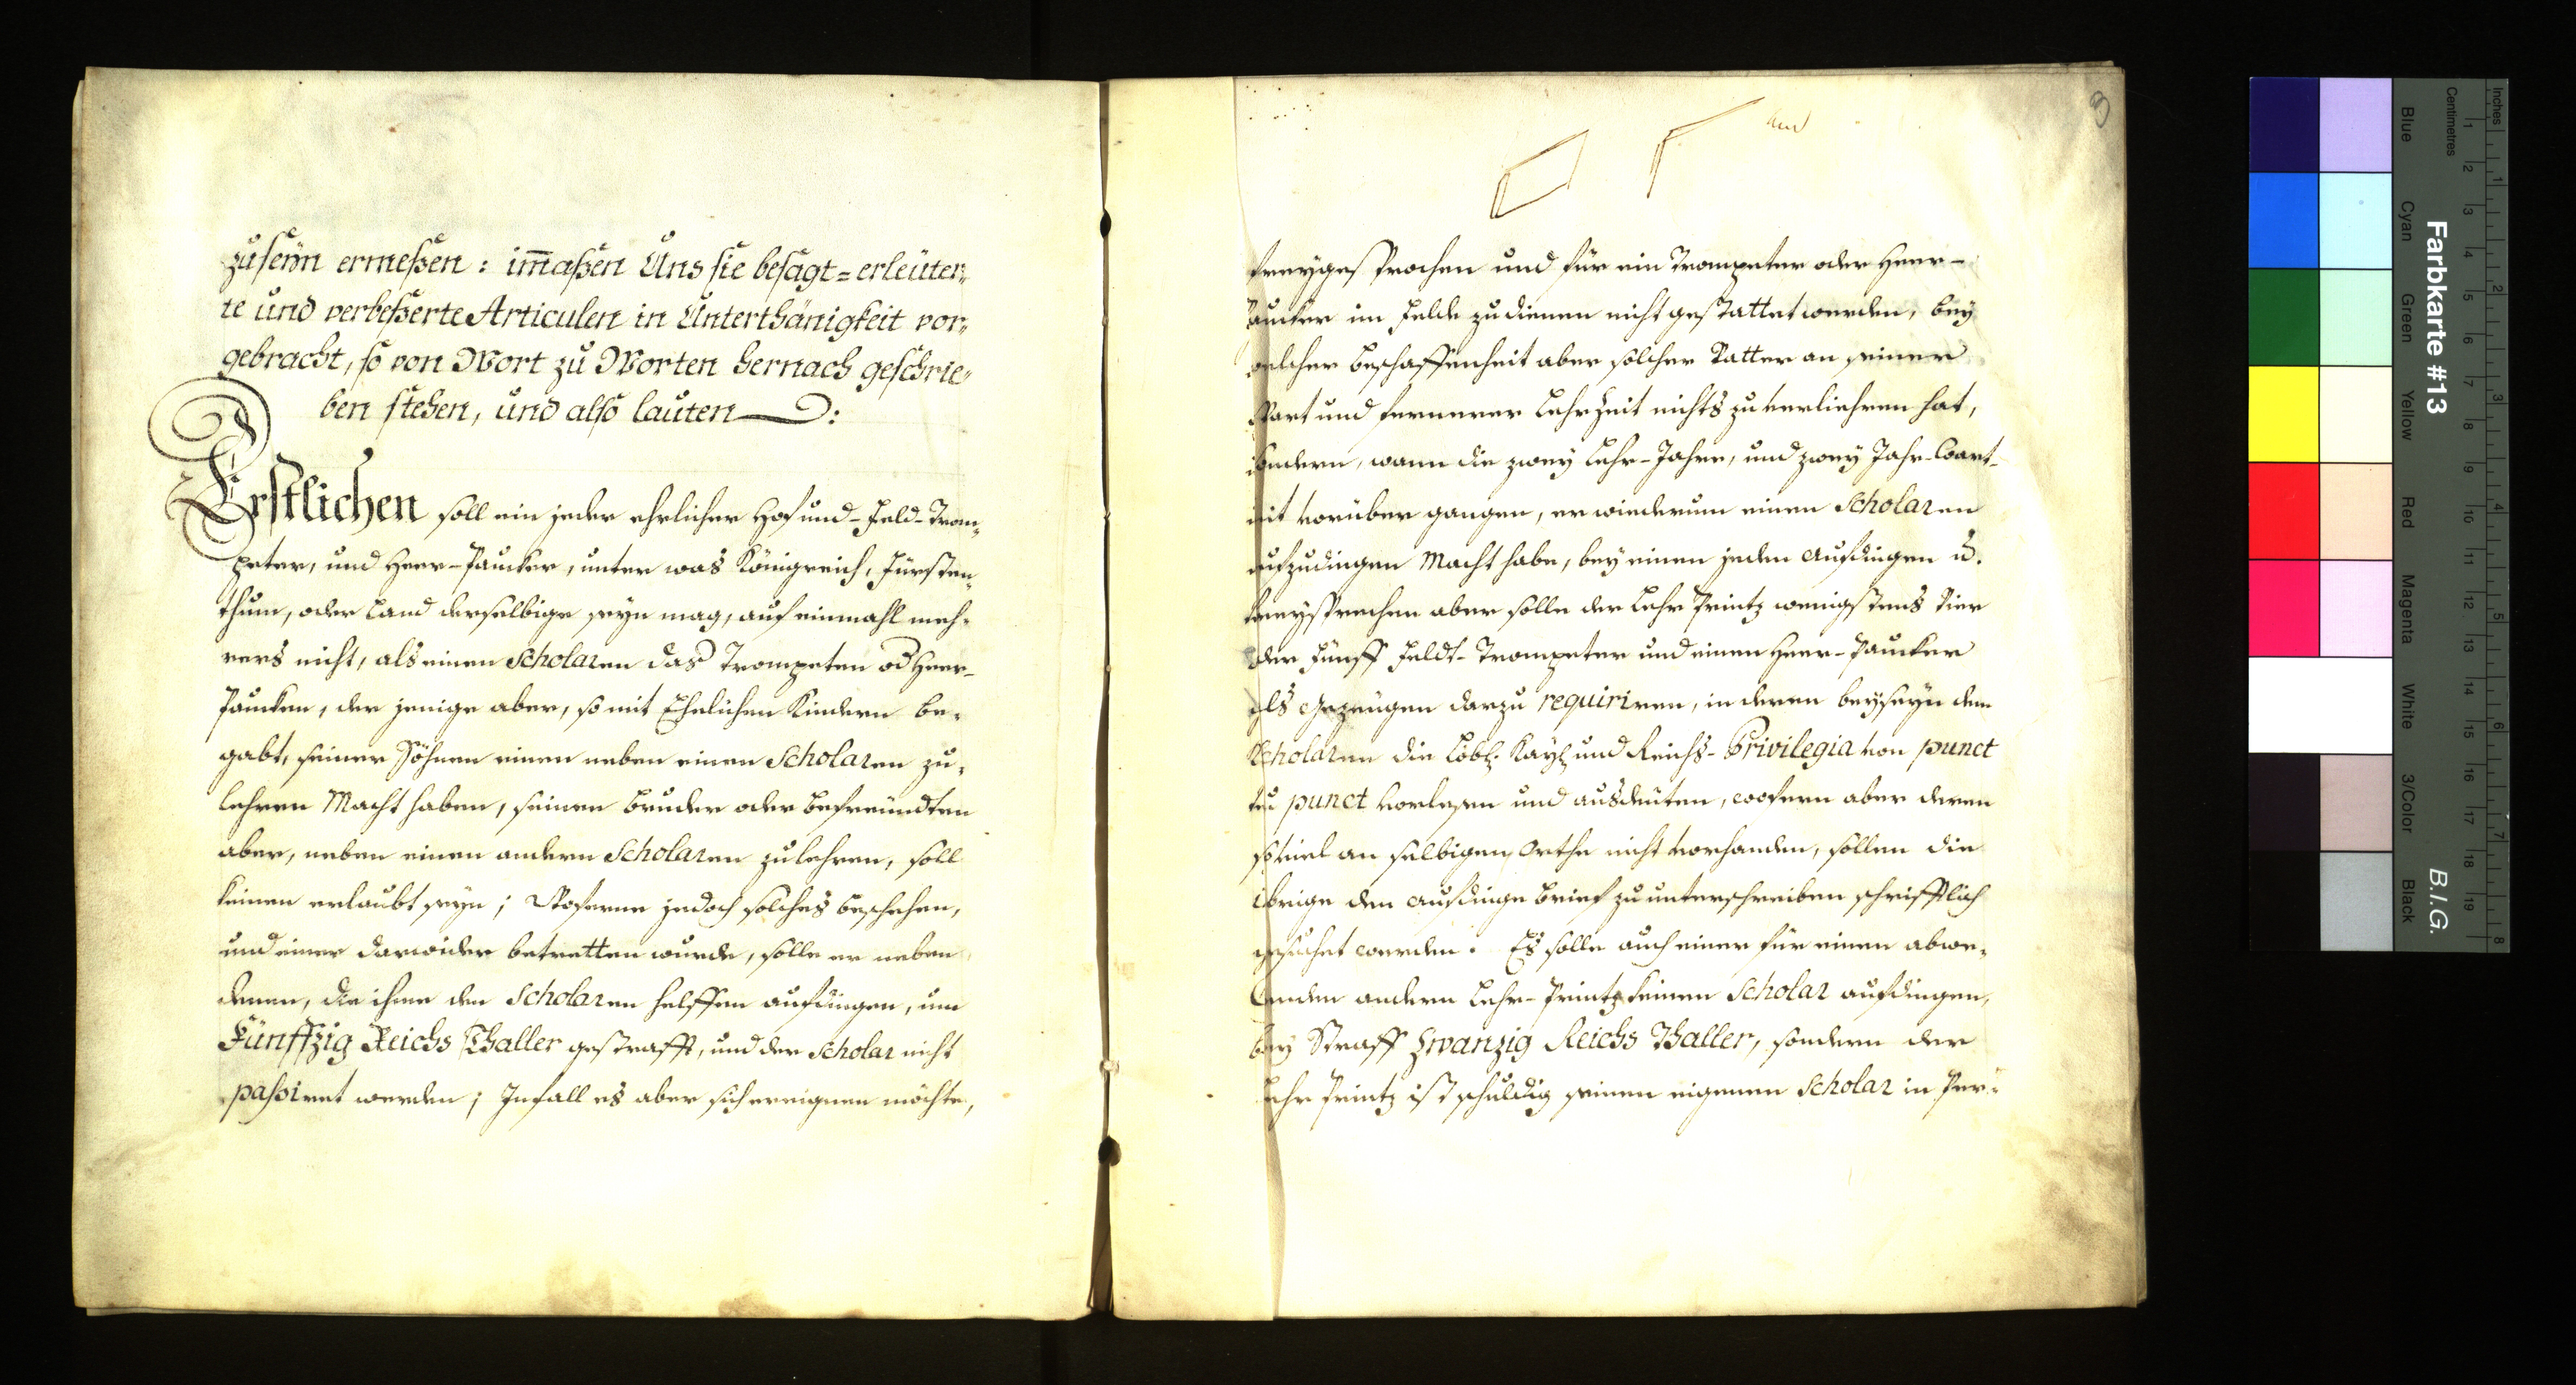 zu seÿn ermeßen: im̃aßen Uns sie besagt= erleüter„
te und verbeßerte Articulen in Unterthänigkeit vor„
gebracht, so von Wort zu Worten hernach geschrie„
ben stehen, und also lauten:
Erstlichen soll ein jeder ehrlicher Hof und- Feld-Trom„
peter, und Heer-Paucker, unter was Königreich, Fürsten„
thum, oder Land derselbige seyn mag, auf einmahl meh„
rers nicht, als einen Scholaren das Trompeten od Heer-
Paucken, der jenige aber, so mit Ehelichen Kindern be„
gabt, seiner Söhnen einen neben einen Scholaren zu„
lehren Macht haben, seinen Bruder oder Befreündten
aber, neben einen andern Scholaren zu lehren, soll
keinen erlaubt seyn; Woferne jedoch solches beschehen,
und einer darwider betretten wurde, solle er neben
denen, die ihme den Scholaren helffen aufdingen, um
Fünffzig Reichs Thaller gestrafft, und der Scholar nicht
passiret werden; Infall es aber sich ereignen möchte,
und
3
freygesprochen und für ein Trompeter oder Heer-
Paucker im Felde zu dienen nicht gestattet werden, bey
welcher Beschaffenheit aber solcher Vatter an seiner
Wart und fernerer Lehrzeit nichts zu verliehren hat,
sondern, wann die zwey Lehr-Jahre, und zwey Jahr-Wart-
zeit vorüber gangen, er wiederum einen Scholaren
aufzudingen Macht habe, bey einen jeden Aufdingen ū.
Freysprechen aber solle der Lehr Printz wenigstens Vier
oder Fünff Feldt-Trompeter und einen Heer-Paucker
als Gezeugen darzu requiriren, in deren beyseyn dem
Scholaren die Löbl. Kayl und Reichs-Privilegia von punct
zu punct vorlesen und ausdeuten, wofern aber deren
soviel an selbigen Orthe nicht vorhanden, sollen die
übrige den Aufdinge Brief zu unterschreiben schrifftlich
gesuchet werden. Es solle auch einer für einen abwe„
senden andern Lehr-Printz keinen Scholar aufdingen,
bey Straff Zwanzig Reichs Thaller, sondern der
Lehr Printz ist schuldig seinen eigenen Scholar in Per„
Farbkarte #13
B.I.G.
Inches
Centimetres
Blue
Cyan
Green
Yellow
Red
Magenta
White
3/Color
Black